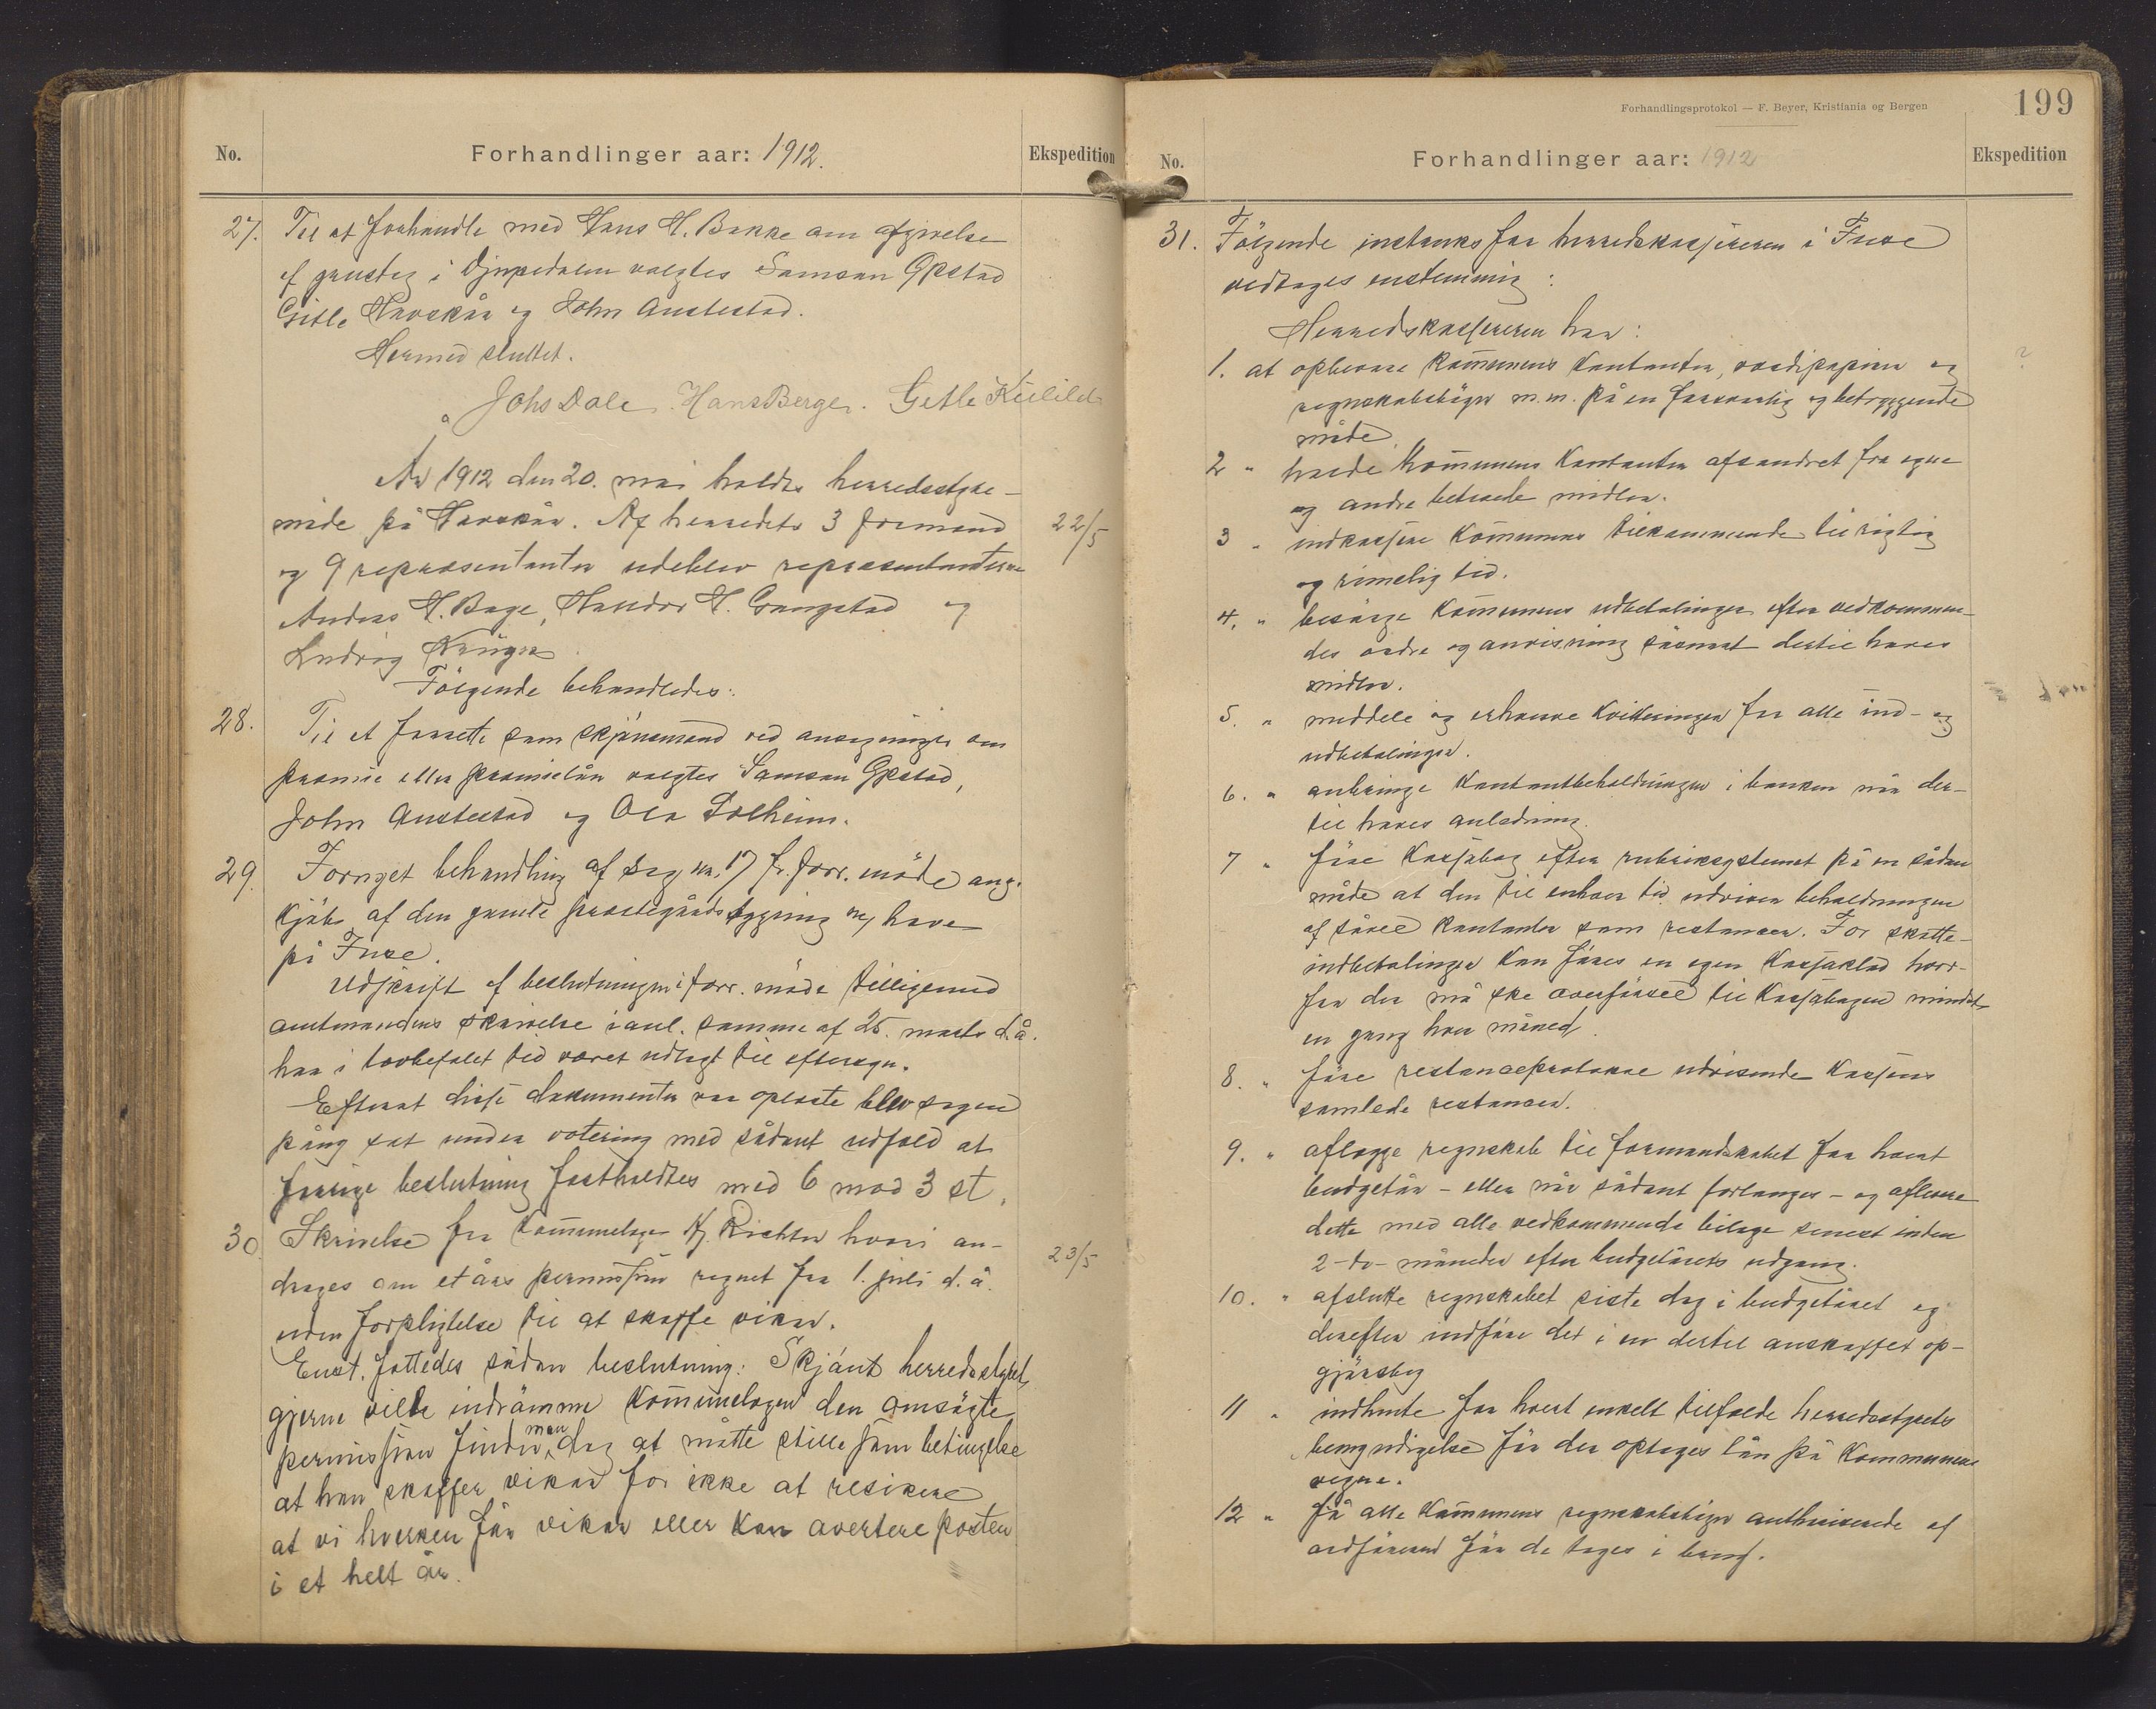 No.
Forhandlinger aar: 1912.
Ekspedition
27. Til at forhandle med Hans H. Bakke om afgivelse
af grustag i Djupedalen valgtes Samson Gjøstad
Gitle Havskår og John Austestad.
Hermed sluttet.
Johs Dale. Hans Berge. Gitle
År 1912 den 20. mai holdtes herredsstyre-
møde på Havskår. Af herredets 3 formænd 22/5
og 9 repræsentanter udeblev repræsentanterne
Anders H. Bage, Halldor H. Gangstad og
Ludvig Krüger
Følgende behandledes:
28. Til at forrette som skjønsmænd ved ansøgninger om
præmie eller præmielån valgtes Samson Gjøstad,
John Austestad og Ola Solheim.
29. Fornyet behandling af sag nr. 17 fr. forr. møde ang.
kjøb af den gamle præstegårdsbygning m/ have
på Fuse.
Udskrift af beslutningen i forr. møde tilligemed
amtmandens skrivelse i anl. samme af 25. marts d.å.
har i lovbefalet tid været udlagt til eftersyn.
Efterat disse dokumenter var oplæste blev sagen
påny sat under votering med sådant udfald at
forrige beslutning fastholdtes med 6 mod 3 st.
30 Skrivelse fra kommunelæge Hj. Richter hvori an- 23/5
drages om et års permission regnet fra 1. juli d.å.
uden forpligtelse til at skaffe vikar.
Enst. fattedes sådan beslutning: Skjønt herredsstyret
gjerne vilde indrømme kommunelægen den ansøgte
permission finder man dog at måtte stille som betingelse
at han skaffer vikar for ikke at resikere
at vi hverken får vikar eller kan avertere posten
i et helt år.
Forhandlingsprotokol — F. Beyer, Kristiania og Bergen
199
No.
Forhandlinger aar: 1912
Ekspedition
31. Følgende instruks for herredskassereren i Fuse
vedtages enstemmig:
Herredskassereren har:
1. at opbevare kommunens kontanter, værdipapirer og
regnskabsbøger m.m. på en forsvarlig og betryggende
måde.
2 " holde kommunens kontanter afsondret fra egne
og andre betroede midler.
3 " indkassere kommunens tilkommende til rigtig
og rimelig tid.
4. " besørge kommunens udbetalinger efter vedkommen-
des ordre og anvisning såsnart dertil haves
midler.
5. " meddele og erhverve kvitteringer for alle ind- og
udbetalinger.
6. " anbringe kontantbeholdningen i banken når der-
til haves anledning.
7 " føre kassabog efter rubriksystemet på en sådan
måde at den til enhver tid udviser beholdningen
af såvel kontanter som restancer. For skatte-
indbetalinger kan føres en egen kassaklad hvor-
fra der må ske overførsel til kassabogen mindst
en gang hver måned.
8. " føre restanceprotokol udvisende kassens
samlede restancer.
9. " aflægge regnskab til formandskabet for hvert
budgetår - eller når sådant forlanges - og aflevere
dette med alle vedkommende bilage senest inden
2 - to - måneder efter budgetårets udgang.
10. " afslutte regnskabet siste dag i budgetåret og
derefter indføre det i en dertil anskaffet op-
gjørsbog
11 " indhente for hvert enkelt tilfælde herredsstyrets
bemyndigelse før der optages lån på kommunens
vegne.
12 " få alle kommunens regnskabsbøger authoriserede af
ordføreren før de tages i brug.